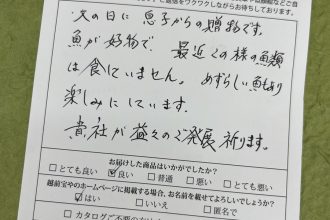 父の日に 息子からの贈物です。
魚が好物で、 最近この様の魚類
は食していません。 めずらしい魚もあり
楽しみにしています。
貴社が益々のご発展祈ります。
お届けした商品はいかがでしたか?
□とても良い ☑良い □普通 □悪い □とても悪い
越前宝やのホームページに掲載する場合、お名前を載せてよろしいでしょうか?
☑はい □いいえ □匿名で
□カタログご不要の